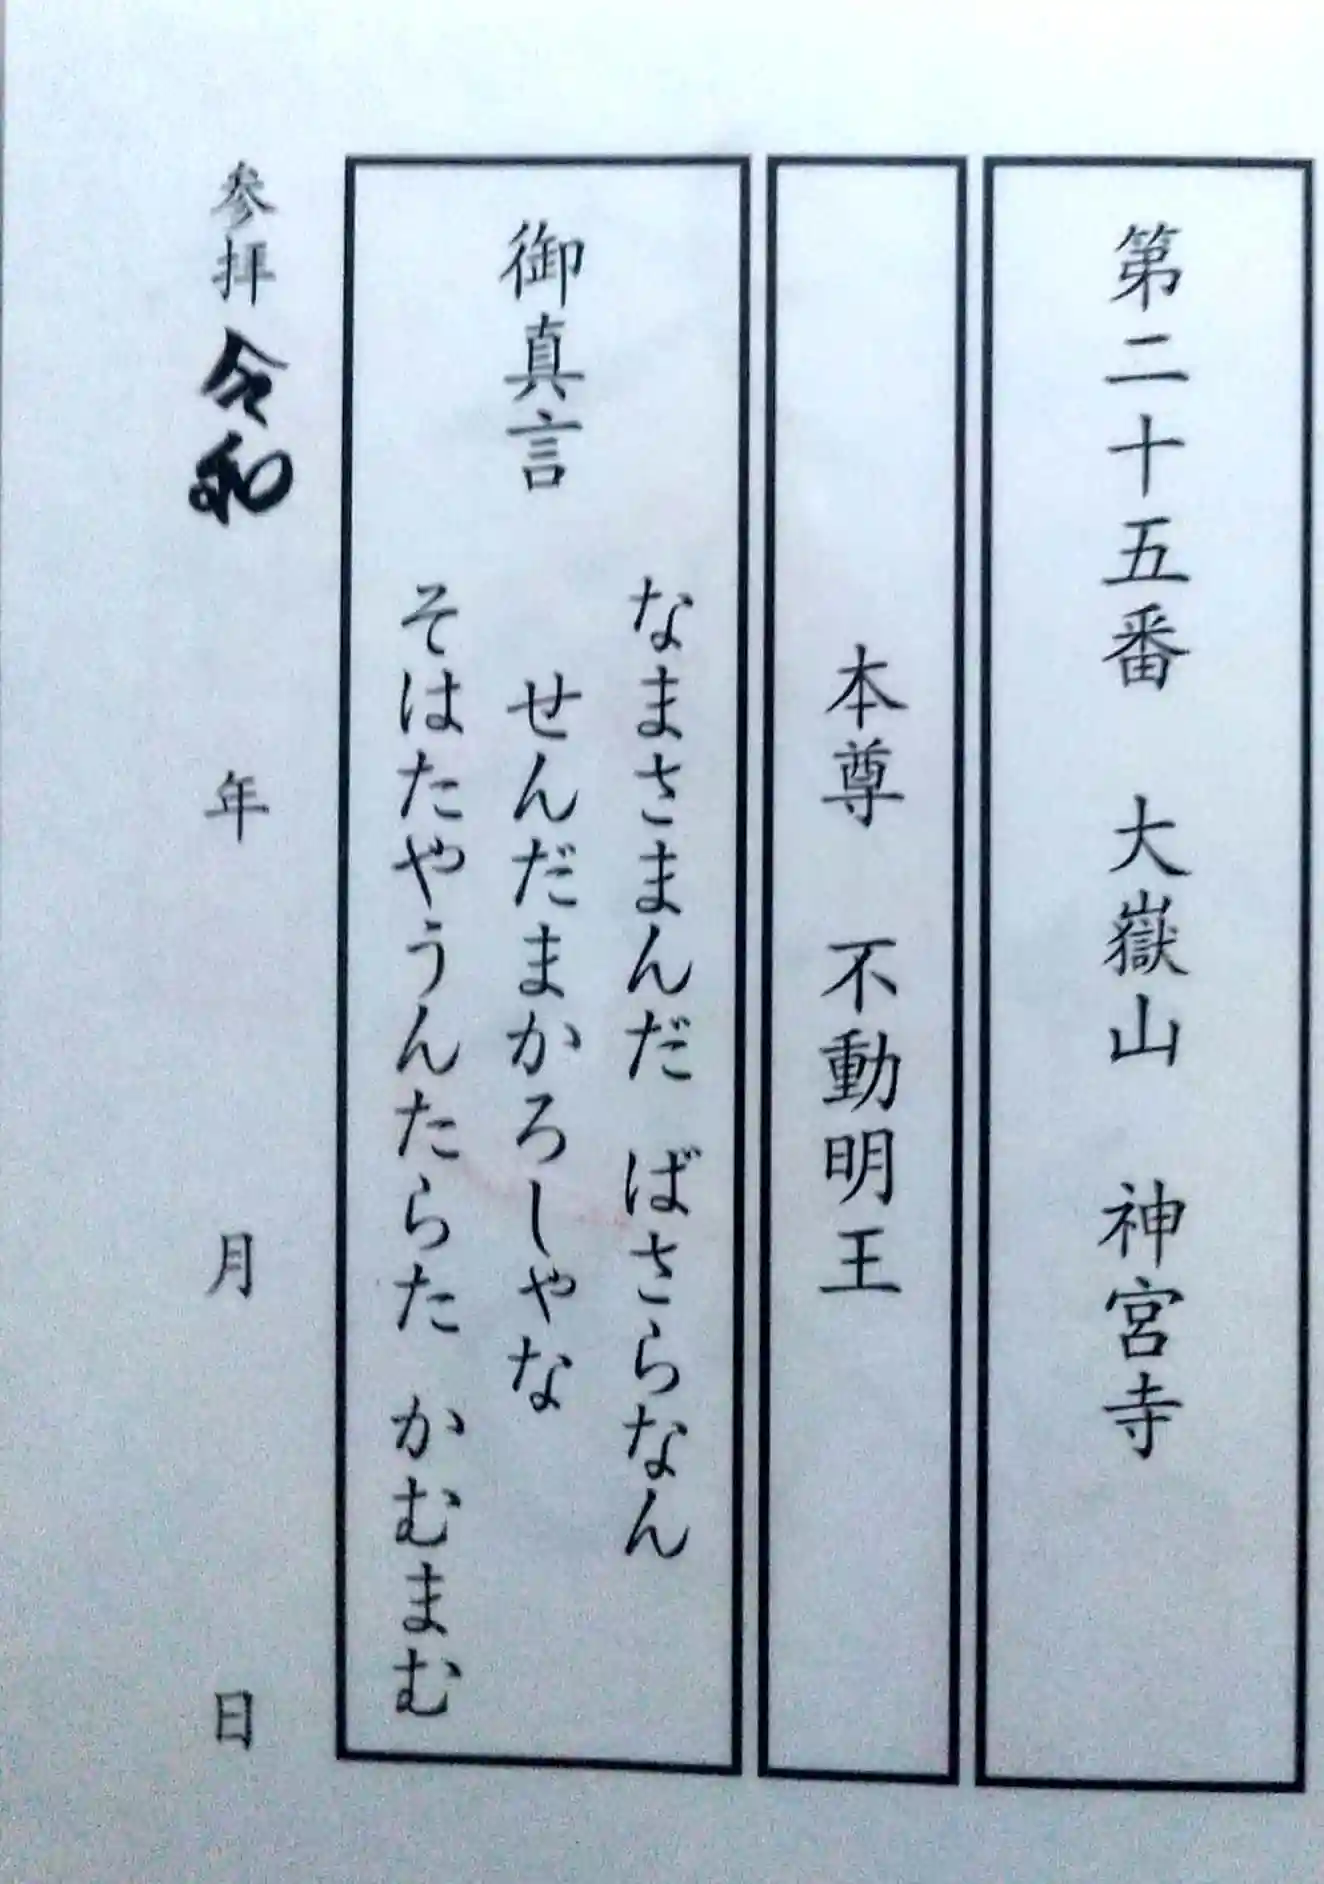 第二十五番　大嶽山　神宮寺
本尊　不動明王
御真言
なまさまんだ　ばさらなん
せんだまかろしやな
そはたやうんたらた　かむまむ
参拝 令和　年　月　日